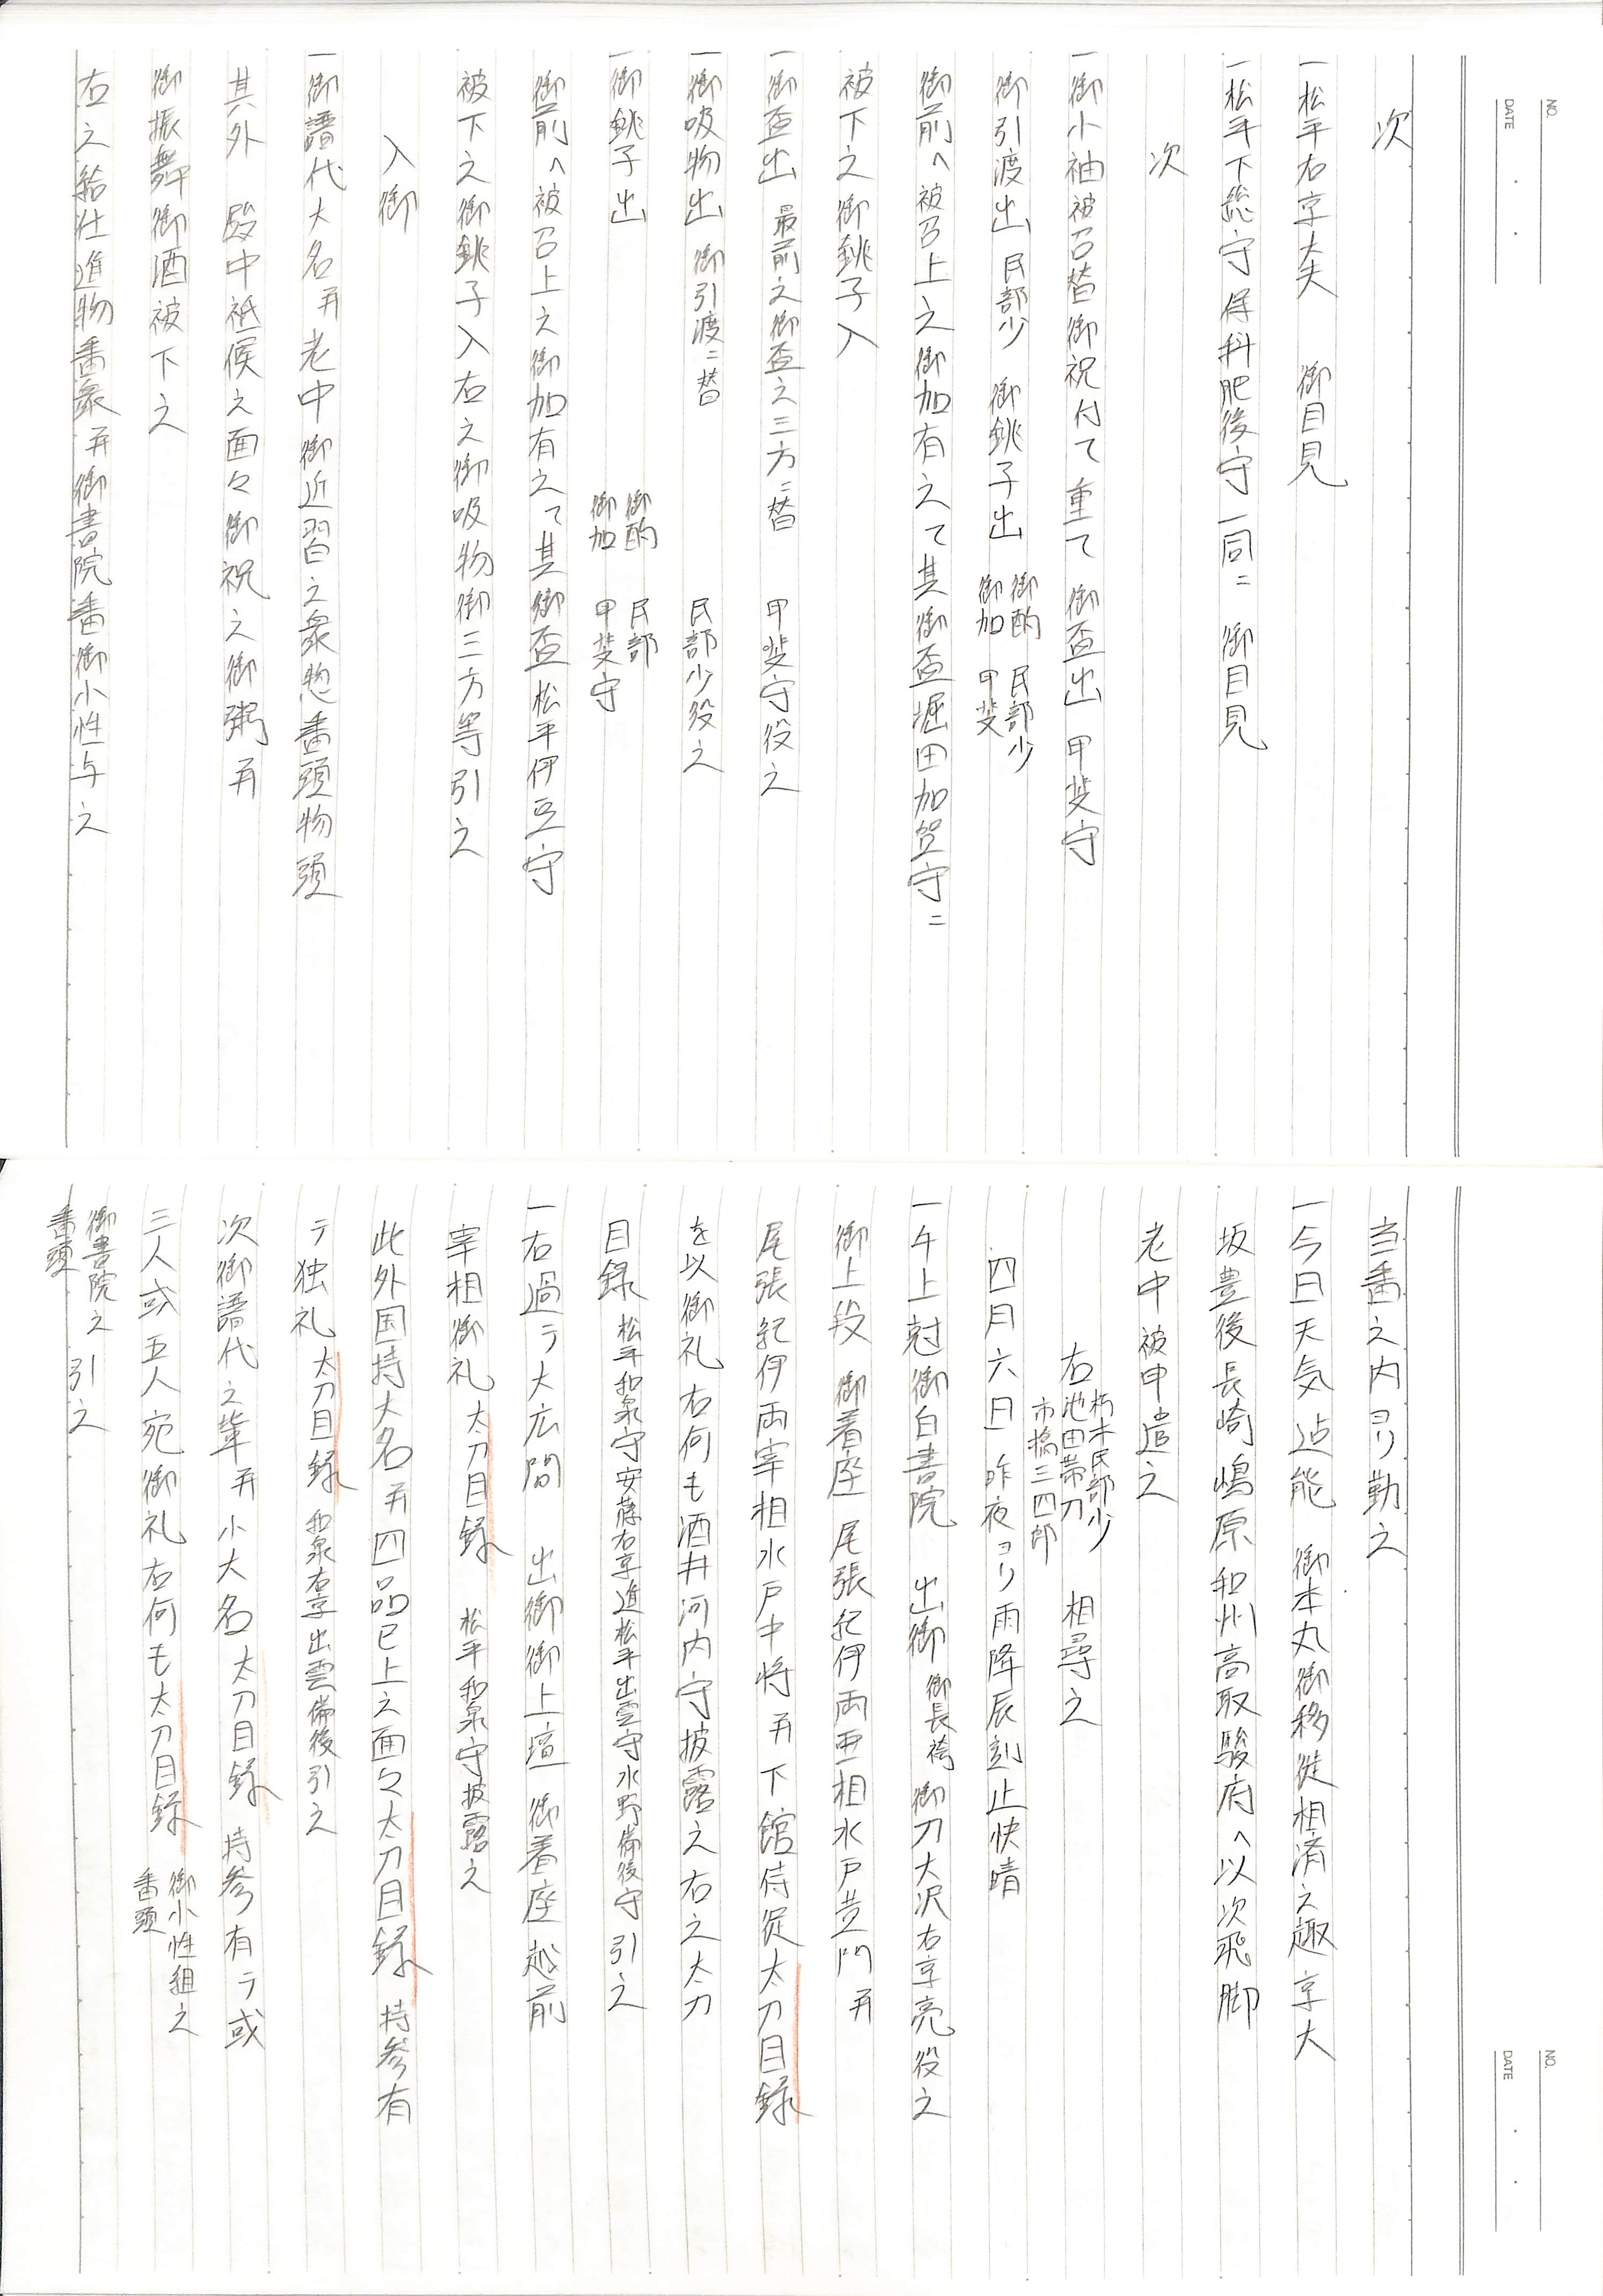 NO.
DATE
次
一松平右京大夫　御目見
一松平下総守保科肥後守一同ニ　御目見
次
一御小袖被召替御祝付て重て　御盃出　甲斐守
御引渡出　民部少　御銚子出　御酌　民部少　御加　甲斐
御前へ被召上之御加有之て其御盃堀田加賀守ニ
被下之御銚子入
一御盃出　最前之御盃之三方ニ替　甲斐守役之
一御吸物出　御引渡ニ替　民部少役之
一御銚子出　御酌　民部　御加　甲斐守
御前へ被召上之御加有之て其御盃松平伊豆守
被下之御銚子入右之御吸物御三方等引之
入御
一御譜代大名并老中御近習之衆惣番頭物頭
其外　殿中祗候之面々御祝之御粥并
御振舞御酒被下之
右之給仕進物番衆并御書院番御小性与之
NO.
DATE
当番之内ヨリ勤之
一今日天気迠能　御本丸御移徙相済之趣京大
坂豊後長崎嶋原和州高取駿府へ以次飛脚
老中被申遣之
右　朽木民部少　池田帯刀　市橋三四郎　相尋之
四月六日　昨夜ヨリ雨降辰刻止快晴
一午上尅御白書院　出御　御長袴　御刀大沢右京亮役之
御上段　御着座　尾張紀伊両亜相水戸黄門并
尾張紀伊両宰相水戸中将并下館侍従太刀目録
を以御礼右何も酒井河内守披露之右之太刀
目録　松平和泉守安藤右京進松平出雲守水野備後守　引之
一右過テ大広間　出御御上壇　御着座越前
宰相御礼　太刀目録　松平和泉守披露之
此外国持大名并四品已上之面々太刀目録　持参有
テ独礼　太刀目録　和泉右京出雲備後引之
次御譜代之輩并小大名　太刀目録　持参有テ或
三人或五人宛御礼右何も太刀目録　御小性組之　番頭
御書院之　番頭　引之